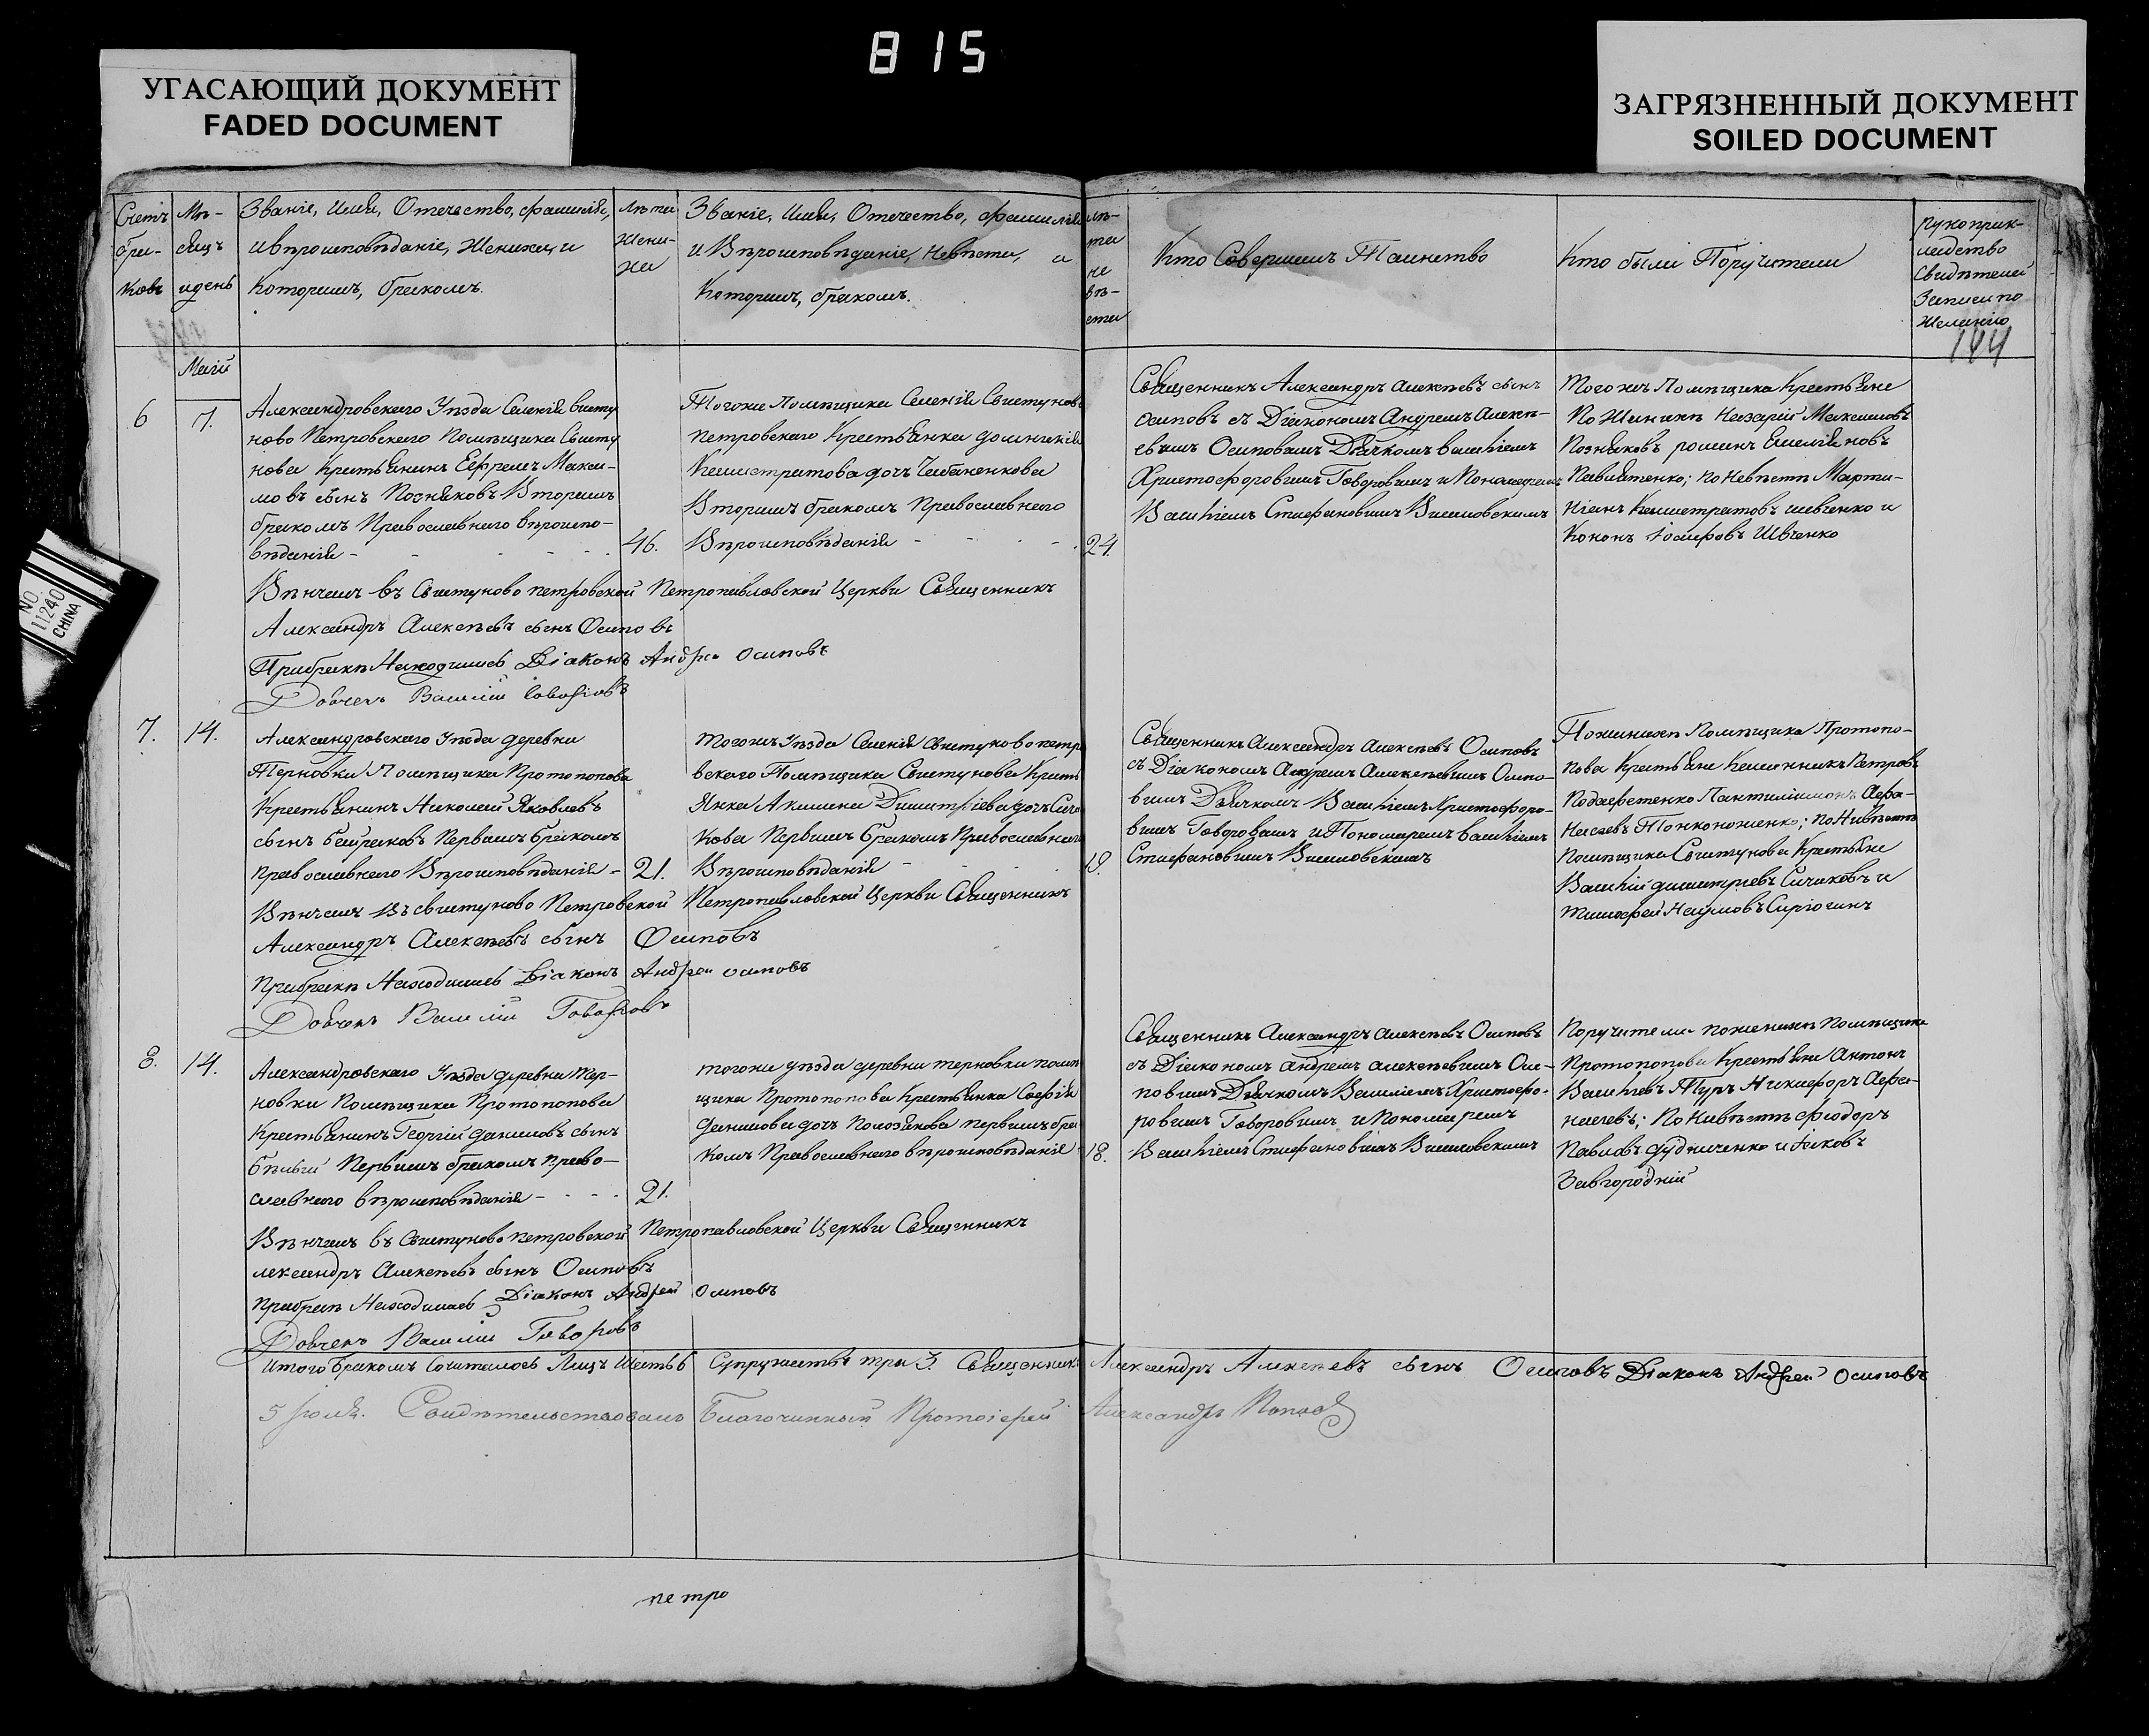 815
УГАСАЮЩИЙ ДОКУМЕНТ
FADED DOCUMENT
ЗАГРЯЗНЕННЫЙ ДОКУМЕНТ
SOILED DOCUMENT
NO
11240
CHINA
Счетъ
бра-
ковъ
Мѣ-
сяцъ
и день
Званіе, Имя, Отечество, фамилія,
и вѣроисповѣданіе, Жениха, и
Которымъ, бракомъ.
Лѣта
Жени-
ха
Званіе, Имя, Отечество, фамилія
и Вѣроисповѣданіе, Невѣсты, и
Которымъ, бракомъ.
лѣ-
та
не
вѣ-
сты
Кто Совершалъ Таинство
Кто были Поручители
рукоприк-
ладство
Свидѣтелей
Записи по
Желанію
144
Маій
6
7.
Александровскаго Уѣзда Селенія Свисту
ново Петровскаго Помѣщика Свисту
нова Крестьянинъ Ефремъ Макси-
мовъ сынъ Позняковъ Вторымъ
бракомъ Православнаго вѣроиспо-
вѣданія - - - - -
46.
Тогоже Помѣщика Селенія Свистунова
петровскаго Крестьянка домникія
Калистратова дочь Чабаненкова
Вторымъ бракомъ Православнаго
Вѣроисповѣданія - - -
24.
Священникъ Александръ Алексѣевъ сынъ
Осиповъ съ Діакономъ Андреемъ Алексѣ-
евымъ Осиповымъ Дьячкомъ Василіемъ
Христофоровымъ Говоровымъ и Пономаремъ
Василіемъ Стефановымъ Вишновскимъ
Тогожъ Помѣщика Крестьяне
По Женихѣ Назарій Максимовъ
Позняковъ романъ Емеліяновъ
; по Невѣстѣ Марти-
ніанъ Калистратовъ шевченко и
Кононъ Іосифовъ Швченко
Вѣнчалъ въ Свистуново петровской Петропавловской Церкви Священникъ
Александръ Алексѣевъ сынъ Осиповъ
При бракѣ Находились Діаконъ Андрей Осиповъ
Василій Говоровъ
7.
14.
Александровскаго Уѣзда деревни
Терновки Помѣщика Протопопова
Крестьянинъ Николай Яковлевъ
сынъ Байраковъ Первымъ бракомъ
православнаго Вѣроисповѣданія -
21.
тогожъ Уѣзда Селенія Свистуново петро
вскаго Помѣщика Свистунова Кресть
янка Акилина Димитріева дочь Сичи
кова Первымъ бракомъ Православнаго
Вѣроисповѣданія - -
18.
Священникъ Александръ Алексѣевъ Осиповъ
съ Діакономъ Андреемъ Алексѣевымъ Осипо-
вымъ Дьячкомъ Василіемъ Христофоро-
вымъ Говоровымъ и Пономаремъ Василіемъ
Стефановымъ Вишновскимъ
По женихѣ Помѣщика Протопо-
пова Крестьяне Калинникъ Петровъ
Пантилимонъ Афа-
насіевъ Тонконоженко; по Нивѣстѣ
Помѣщика Свистунова Крестьяне
Василій димитріевъ Сичиковъ и
тимофей Наумовъ Сиргіенъ
Вѣнчалъ Въ свистуново Петровской Петропавловской Церкви Священникъ
Александръ Алексѣевъ сынъ Осиповъ
При бракѣ Находились Діаконъ Андрей осиповъ
Василій Говоровъ
8.
14.
Александровскаго Уѣзда деревни Тер-
новки Помѣщика Протопопова
Крестьянинъ Георгій даниловъ сынъ
Бѣлый Первымъ бракомъ право-
славнаго вѣроисповѣданія - - - -
21.
тогоже уѣзда деревни терновки помѣ
щика Протопопова Крестьянка Софія
данилова дочь Полозякова первымъ бра
комъ Православнаго вѣроисповѣданія
18.
Священникъ Александръ Алексѣевъ Осиповъ
съ Діакономъ Андреемъ алексѣевымъ Оси-
повымъ Дьячкомъ Василіемъ Христофо-
ровымъ Говоровымъ и Пономаремъ
Василіемъ Стефановымъ Вишновскимъ
Поручители по женихѣ Помѣщика
Протопопова Крестьяне Антонъ
Василіевъ Туръ Никифоръ Афа-
насіевъ; По Нивѣстѣ феодоръ
Павловъ дудниченко и Іаковъ
Завгородній
Вѣнчалъ въ Свистуново петровской Петропавловской Церкви Священникъ
лександръ Алексѣевъ сынъ Осиповъ
при бракѣ Находились Діаконъ Андрей осиповъ
Василій Говоровъ
Итого бракомъ Сочиталось Лицъ Шесть 6 Супружествъ три 3. Священникъ Александръ Алексѣевъ сынъ Осиповъ Діаконъ Андрей Осиповъ
5 Іюля. Свидѣтельствовалъ Благочинный Протоіерей Александръ Поповъ
петро